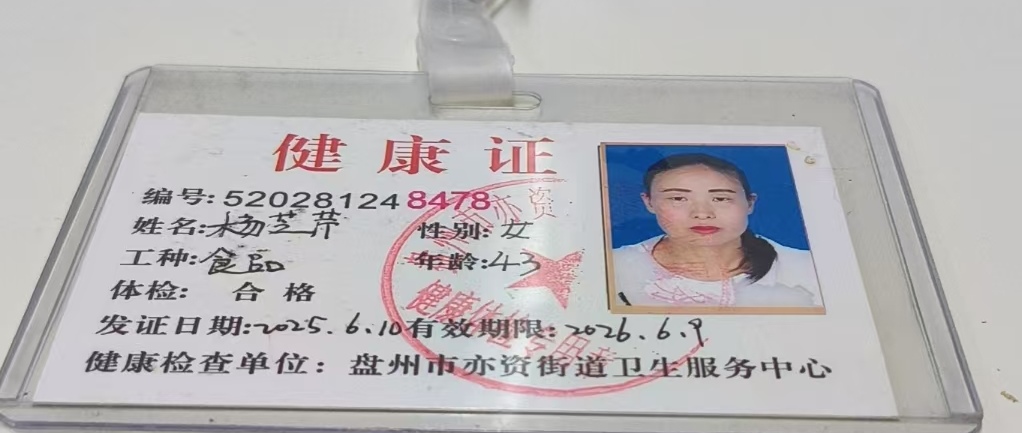 健康证
编号:520281248478
姓名:杨芝芹 性别:女
工种:食品 年龄:43
体检: 合格
发证日期:2025.6.10有效期限:2026.6.9
健康检查单位: 盘州市亦资街道卫生服务中心